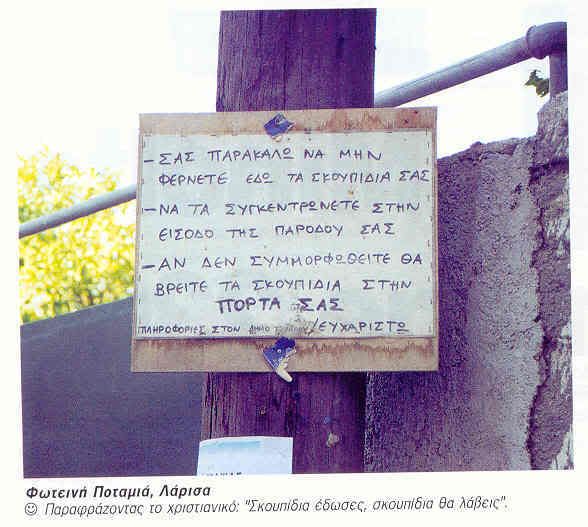 - ΣΑΣ ΠΑΡΑΚΑΛΩ ΝΑ ΜΗΝ
ΦΕΡΝΕΤΕ ΕΔΩ ΤΑ ΣΚΟΥΠΙΔΙΑ ΣΑΣ
- ΝΑ ΤΑ ΣΥΓΚΕΝΤΡΩΝΕΤΕ ΣΤΗΝ
ΕΙΣΟΔΟ ΤΗΣ ΠΑΡΟΔΟΥ ΣΑΣ
- ΑΝ ΔΕΝ ΣΥΜΜΟΡΦΩΘΕΙΤΕ ΘΑ
ΒΡΕΙΤΕ ΤΑ ΣΚΟΥΠΙΔΙΑ ΣΤΗΝ
ΠΟΡΤΑ ΣΑΣ
ΠΛΗΡΟΦΟΡΙΕΣ ΣΤΟΝ ΔΗΜΟ /ΕΥΧΑΡΙΣΤΩ
Φωτεινή Ποταμιά, Λάρισα
☺ Παραφράζοντας το χριστιανικό: "Σκουπίδια έδωσες, σκουπίδια θα λάβεις".